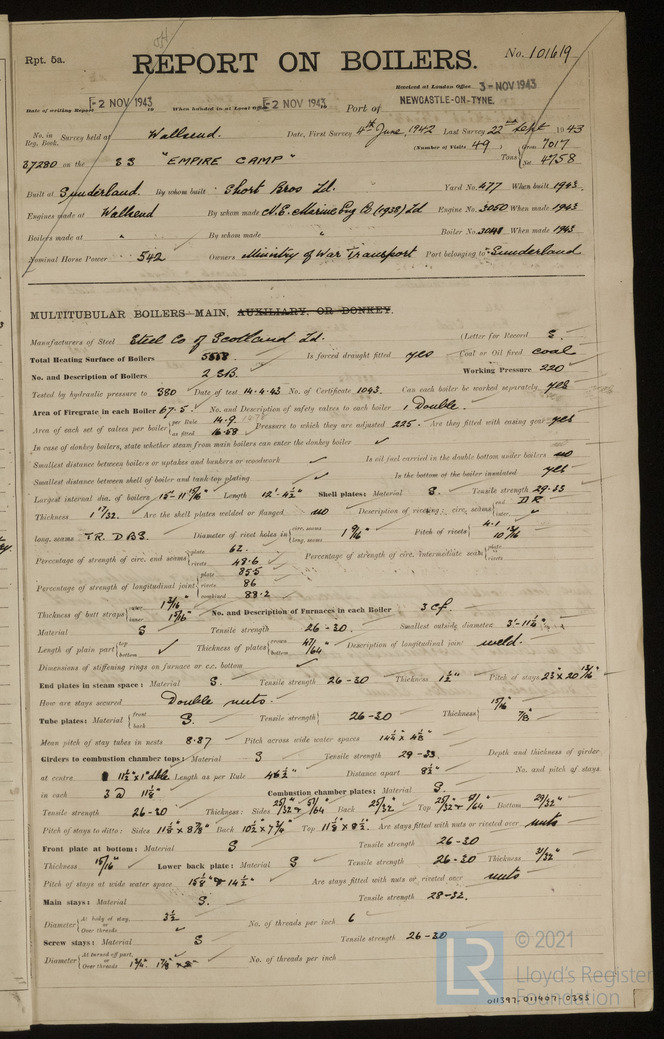 Rpt. 5a.
REPORT ON BOILERS.
No. 101619
Received at London Office 3 - NOV 1943
Date of writing Report - 2 NOV 1943 When handed in at Local Office - 2 NOV 1943 Port of NEWCASTLE-ON-TYNE.
No. in Reg. Book. Survey held at Wallsend. Date, First Survey 4th June, 1942 Last Survey 22nd Sept 1943
(Number of Visits 49) Gross 7017
37280 on the SS "EMPIRE CAMP" Tons Net 4758
Built at Sunderland By whom built Short Bros Ld. Yard No. 477 When built 1943
Engines made at Wallsend By whom made N.E. Marine Eng Co (1938) Ld Engine No. 3050 When made 1943
Boilers made at " By whom made " Boiler No. 3048 When made 1943
Nominal Horse Power 542 Owners Ministry of War Transport Port belonging to Sunderland
MULTITUBULAR BOILERS MAIN, AUXILIARY, OR DONKEY.
Manufacturers of Steel Steel Co of Scotland Ld. (Letter for Record S.
Total Heating Surface of Boilers Is forced draught fitted yes Coal or Oil fired coal
No. and Description of Boilers 2 SB. Working Pressure 220
Tested by hydraulic pressure to 380 Date of test 14.4.43 No. of Certificate 1043 Can each boiler be worked separately yes
Area of Firegrate in each Boiler 67.5 No. and Description of safety valves to each boiler 1 Double.
Area of each set of valves per boiler per Rule 14.9 as fitted 16.58 Pressure to which they are adjusted 225 Are they fitted with easing gear yes
In case of donkey boilers, state whether steam from main boilers can enter the donkey boiler ✓
Smallest distance between boilers or uptakes and bunkers or woodwork ✓ Is oil fuel carried in the double bottom under boilers no
Smallest distance between shell of boiler and tank top plating ✓ Is the bottom of the boiler insulated yes
Largest internal dia. of boilers 15'-11 13/16" Length 12'-4½" Shell plates: Material S. Tensile strength 29-33
Thickness 1 17/32 Are the shell plates welded or flanged no Description of riveting: circ. seams end DR inter. ✓
long. seams TR. DBS. Diameter of rivet holes in circ. seams long. seams 1 9/16 Pitch of rivets 4.1 10 13/16
Percentage of strength of circ. end seams plate 62. rivets 48.6 Percentage of strength of circ. intermediate seam plate rivets
Percentage of strength of longitudinal joint plate 85.5 rivets 86 combined 88.2
Thickness of butt straps outer 1 3/16" inner 1 5/16" No. and Description of Furnaces in each Boiler 3 cf.
Material S Tensile strength 26-30 Smallest outside diameter 3'-11¼"
Length of plain part top bottom ✓ Thickness of plates crown bottom 47/64" Description of longitudinal joint weld.
Dimensions of stiffening rings on furnace or c.c. bottom ✓
End plates in steam space: Material S. Tensile strength 26-30 Thickness 1½" Pitch of stays 23" x 20 13/16"
How are stays secured Double nuts.
Tube plates: Material front back S. Tensile strength 26-30 Thickness 15/16" 7/8"
Mean pitch of stay tubes in nests 8.87 Pitch across wide water spaces 14¼" x 4⅛"
Girders to combustion chamber tops: Material S Tensile strength 29-33 Depth and thickness of girder
at centre 11½" x 1" dble Length as per Rule 46½" Distance apart 8½" No. and pitch of stays
in each 3 @ 11⅛" Combustion chamber plates: Material S.
Tensile strength 26-30 Thickness: Sides 25/32" & 51/64 Back 25/32" Top 25/32" & 51/64 Bottom 29/32"
Pitch of stays to ditto: Sides 11⅛" x 8⅞" Back 10½" x 7¾" Top 11⅛" x 8½. Are stays fitted with nuts or riveted over nuts
Front plate at bottom: Material S Tensile strength 26-30
Thickness 15/16" Lower back plate: Material S Tensile strength 26-30 Thickness 31/32"
Pitch of stays at wide water space 15⅛" & 14½" Are stays fitted with nuts or riveted over nuts
Main stays: Material S. Tensile strength 28-32.
Diameter At body of stay, or Over threads 3½ No. of threads per inch 6
Screw stays: Material S Tensile strength 26-30
Diameter At turned off part, or Over threads 1¾". 1⅞" No. of threads per inch
LR © 2021
Lloyd's Register
Foundation
011397-011407-0355